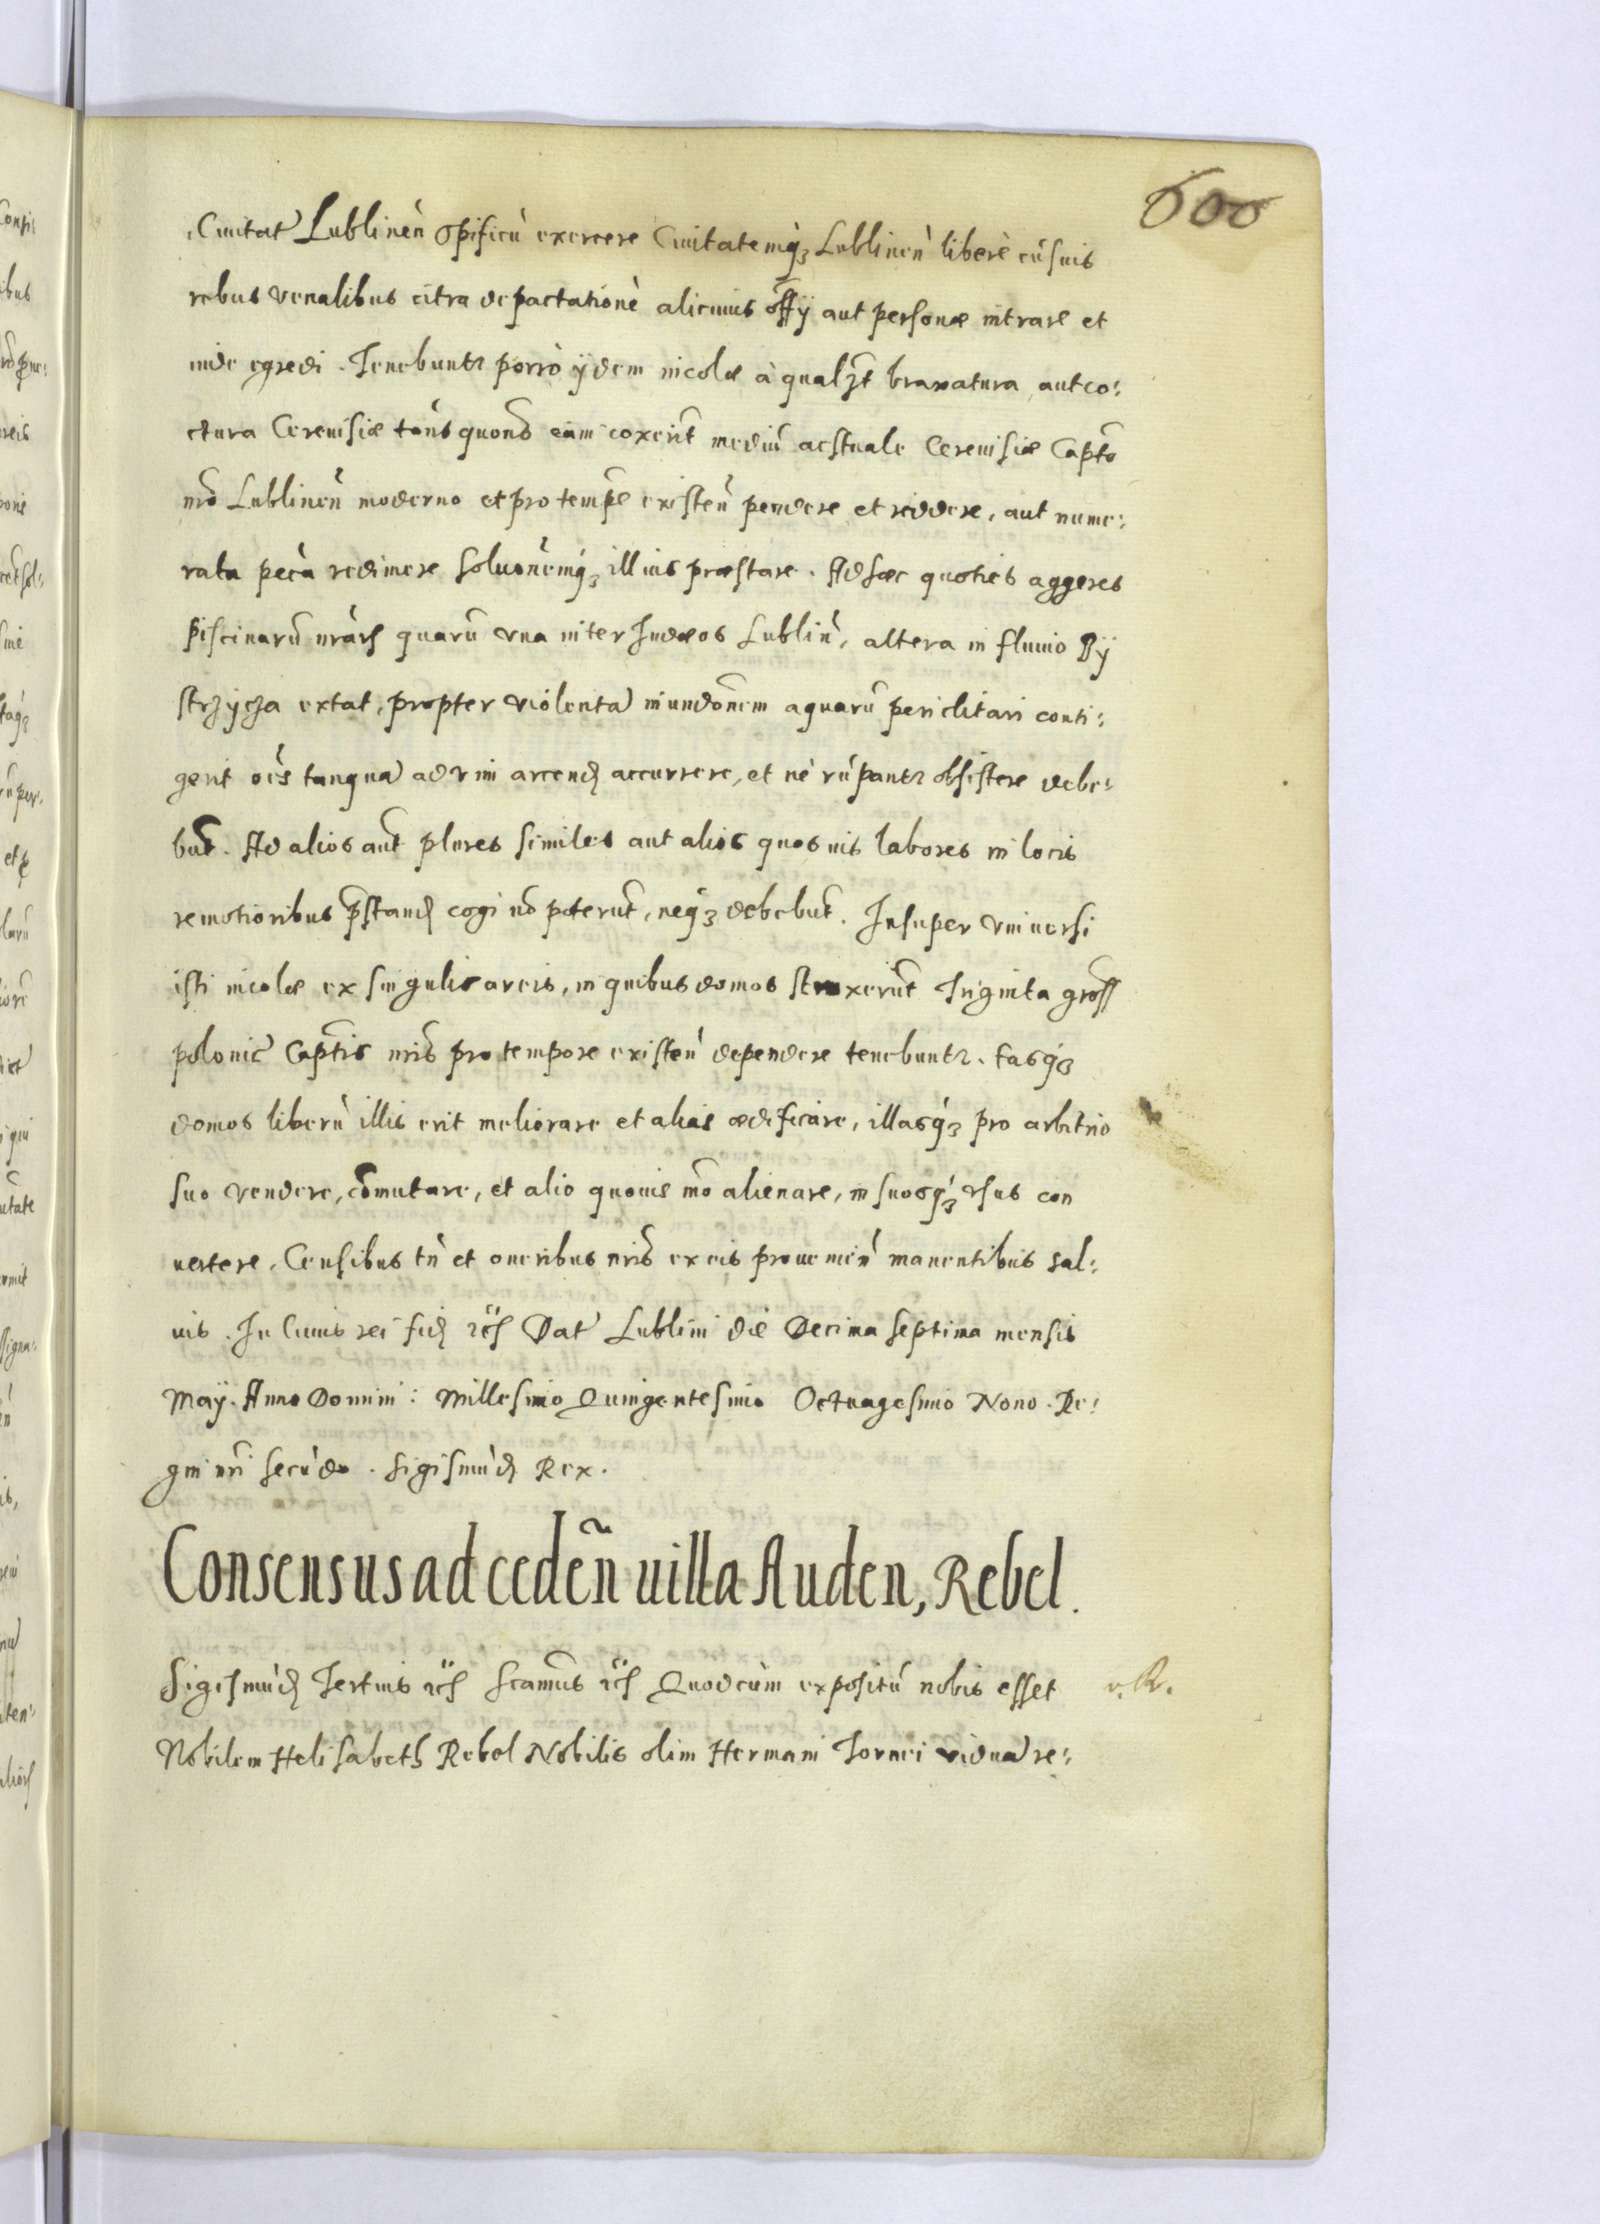 600
Ciuitat Lublinen̄ opificiū exercere Ciuitatemq́ꝫ Lublinen̄ liberè cū suis
rebus venalibus citra depactationē alicuius offy aut personæ intrare et
inde egredi. Tenebuntr porrò ijdem incolæ à qualꝫt braxatura, aut co:
ctura Cereuisiæ tons quons eam coxerit mediū aestuale Cereuisiæ Capto
nro Lublinen̄ moderno et pro tempe existen̄ pendere et reddere, aut nume:
rata pecā redimere soluonemq́ꝫ illius præstare. Ad hæc quoties aggeres
piscinarū nrarꝫ quarū vna inter Iudæos Lublin̄, altera in fluuio By
strzycza extat, propter violentā inundonem aquarū periclitari conti:
gerit oēs tanquā ad vim arcend accurrere, et nè rūpantr obsistere debe:
būt. Ad alios aūt plures similes aut alios quosuis labores in locis
remotioribus pstand cogi nō poterūt, neqꝫ debebūt. Insuper vniuersi
isti incolæ ex singulis areis, in quibus domos struxerūt Triginta gross
polonic Captis nris pro tempore existen̄ dependere tenebuntr. Easq́ꝫ
domos liberū illis erit meliorare et alias ædificare, illasq́ꝫ pro arbitrio
suo vendere, cōmutare, et alio quouis mō alienare, in suosq́ꝫ vsus con
uertere. Censibus tn̄ et oneribus nris ex eis prouenien̄ manentibus sal:
uis. In Cuius rei fid etc Dat Lublini die Decima septima mensis
Maij. Anno Domini: Millesimo Quingentesimo Octuagesimo Nono. Re:
gni nri secūdo. Sigismūd Rex.
Consensus ad ceden̄ uilla Auden, Rebel.
Sigismūd Tertius etc Scamus etc Quod cùm expositū nobis esset
Nobilem Helisabeth Rebel Nobilis olim Hermani Tornei viduā re:
v. R.